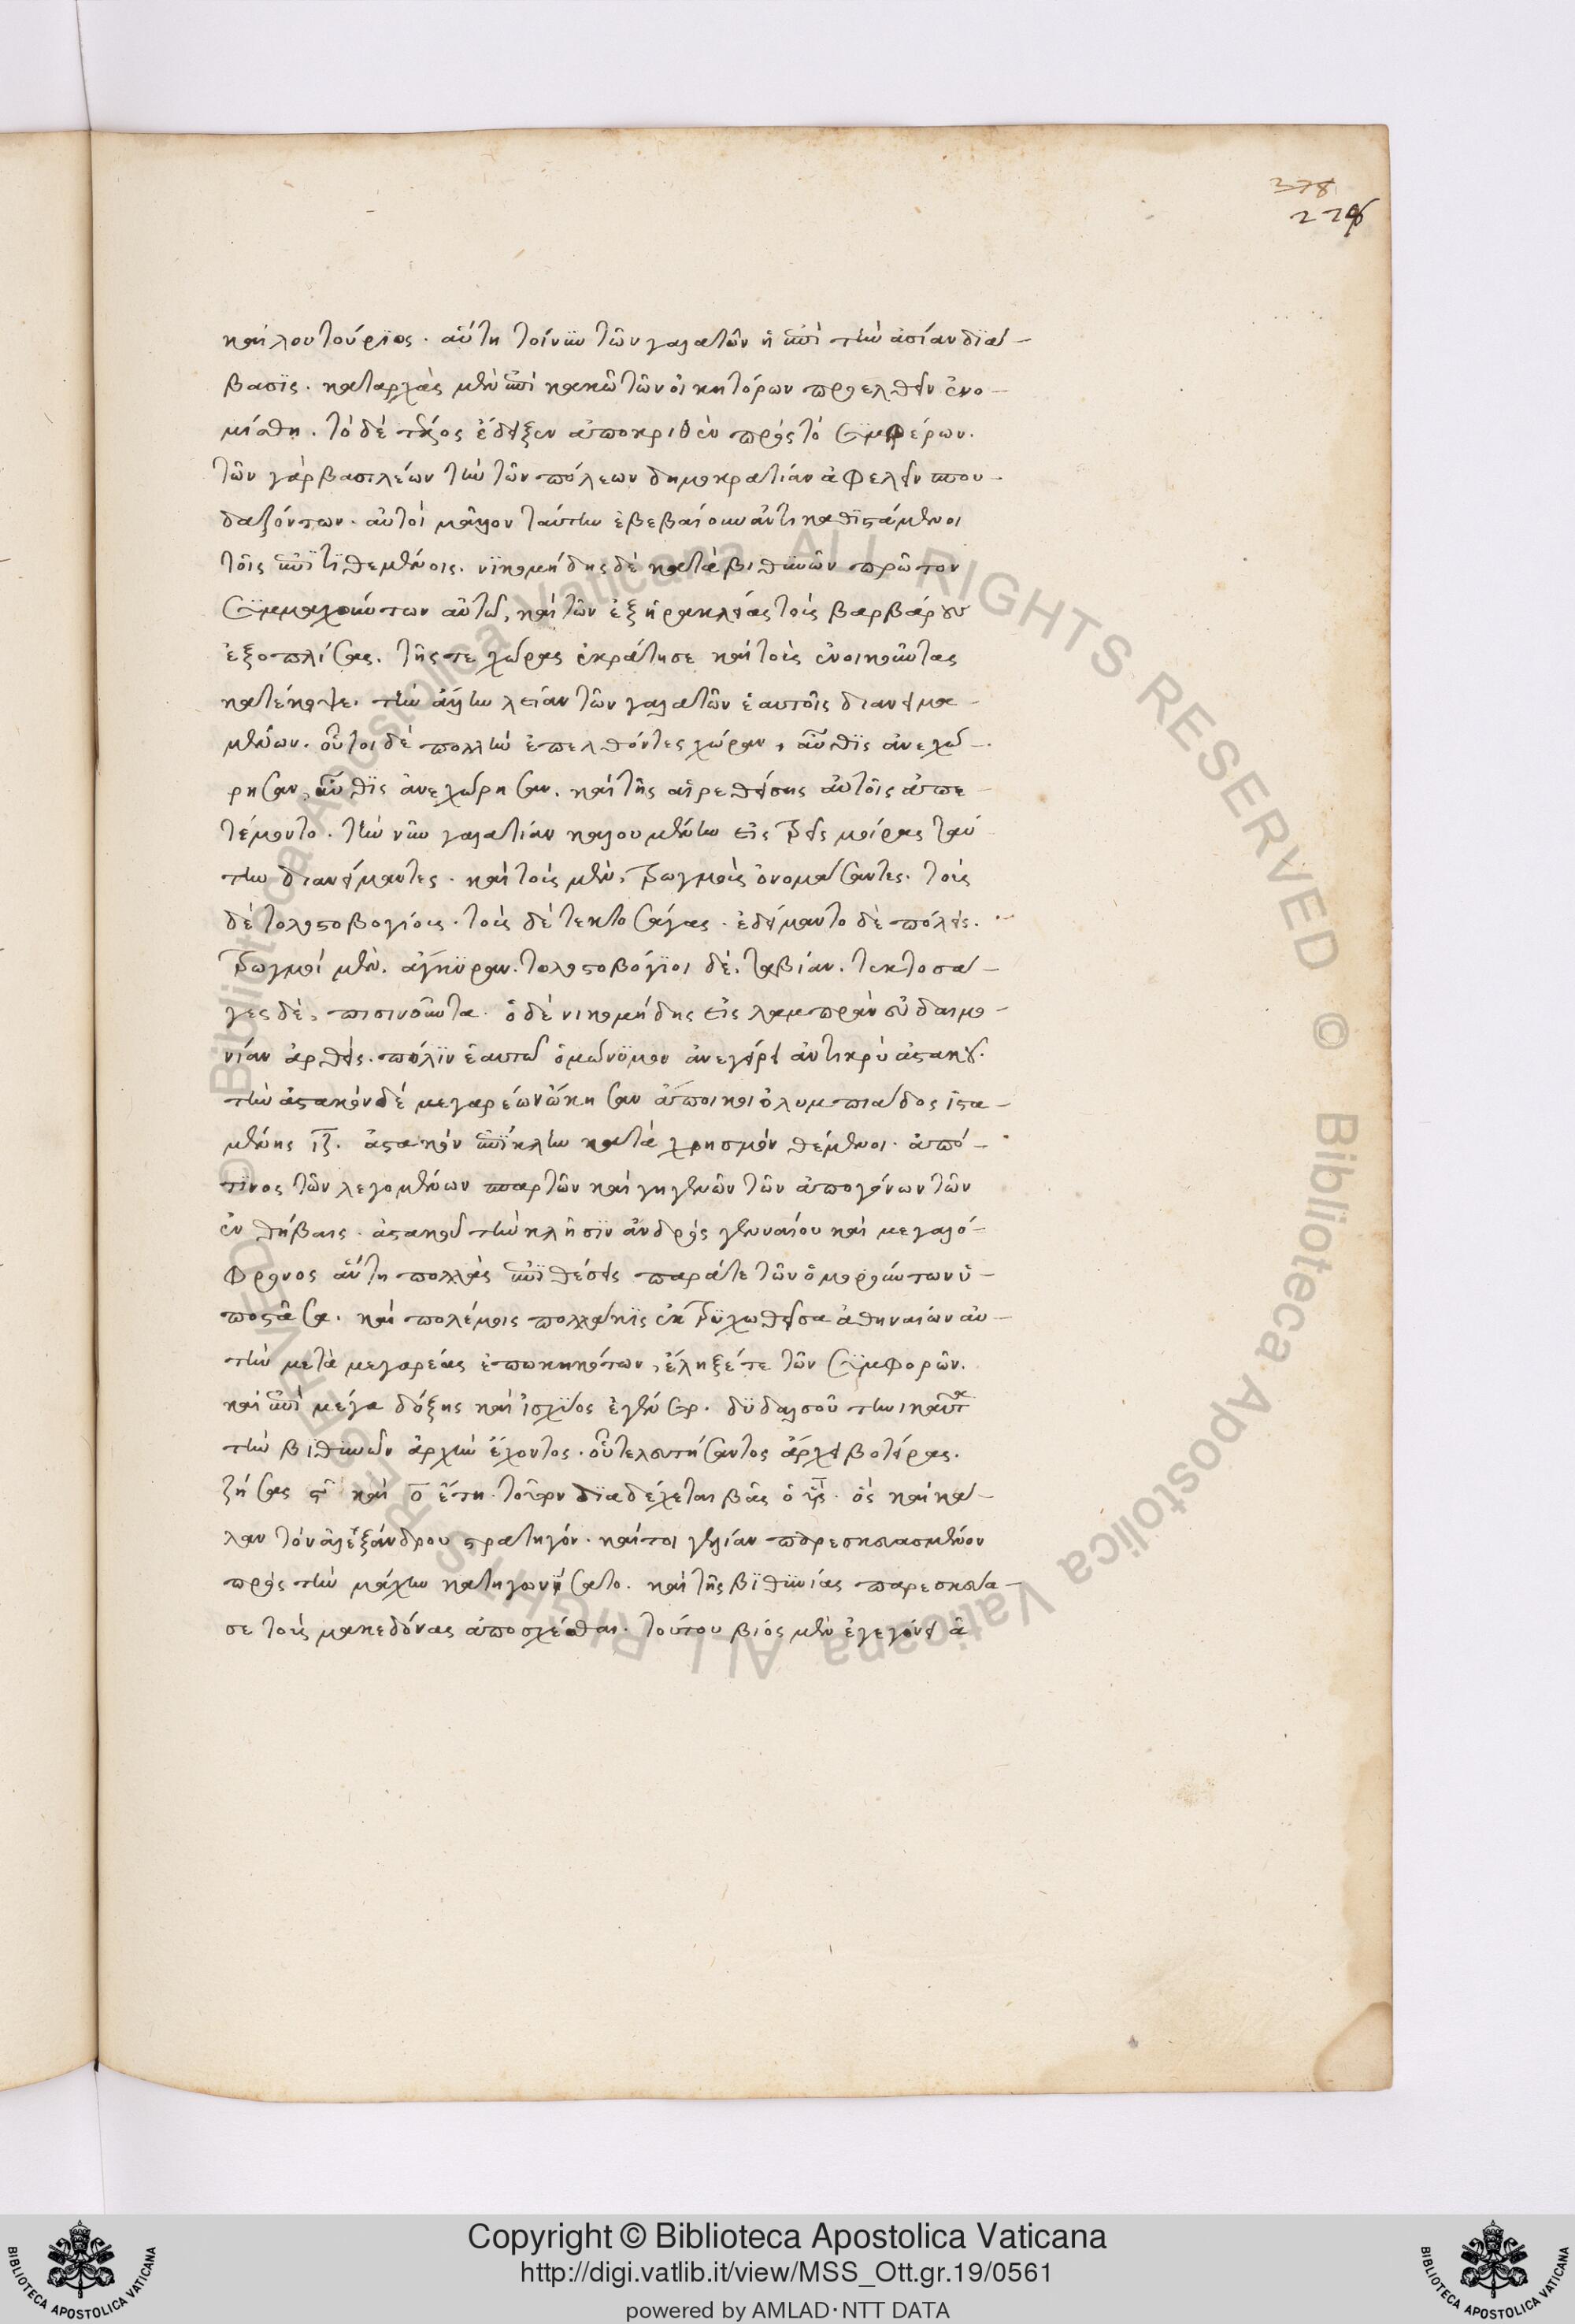 378
226
καὶ λουτούριος. αὕτη τοίνυν τῶν γαλατῶν ἡ ἐπὶ τὴν ἀσίαν διά-
βασις. καταρχὰς μὲν ἐπὶ κακῶ τῶν οἰκητόρων προελθεῖν ἐνο-
μίσθη. τὸ δὲ τέλος ἔδειξεν ἀποκριθὲν πρὸς τὸ συμφέρων.
τῶν γὰρ βασιλέων τὴν τῶν πόλεων δημοκρατίαν ἀφελεῖν σπου-
δαζόντων. αὐτοὶ μᾶλλον ταύτην ἐβεβαίουν ἀντικαθϊστάμενοι
τοῖς ἐπϊτϊθεμένοις. νϊκομήδης δὲ κατὰ βιθϋνῶν πρῶτον
συμμαχούντων αὐτῶ, καὶ τῶν ἐξ ἡρακλείας τοὺς βαρβάρους
ἐξοπλίσας. τῆς τε χώρας ἐκράτησε καὶ τοὺς ἐνοικοῦντας
κατέκοψε. τὴν ἄλλην λείαν τῶν γαλατῶν ἑαυτοῖς διανειμα-
μένων. οὗτοι δὲ πολλὴν ἐπελθόντες χώραν, αὖθϊς ἀνεχώ-
ρησαν, αὖθϊς ἀνεχώρησαν. καὶ τῆς αἱρεθείσης αὐτοῖς ἀπε-
τέμοντο. τὴν νῦν γαλατίαν καλουμένην εἰς τρεῖς μοίρας ταύ-
την διανείμαντες. καὶ τοὺς μὲν, τρωγμοὺς ὀνομάσαντες. τοὺς
δὲ τολοστοβογίους. τοὺς δὲ τεκτοσάγας. ἐδείμαντο δὲ πόλεις.
τρωγμοὶ μὲν. ἄγκϋραν. τολοστοβόγϊοι δὲ. ταβίαν. τεκτοσά-
γες δὲ, πισινοῦντα. ὁ δὲ νικομήδης εἰς λαμπρὰν εὐδαιμο-
νίαν ἀρθεὶς. πόλϊν ἑαυτῶ ὁμώνϋμον ἀνεγείρει ἀντικρὺ ἀστακοῦ.
τὴν ἀστακὸν δὲ μεγαρέων ὤκησαν ἄποικοι ὀλυμπιάδος ἱστα-
μένης ιζ. ἀστακὸν ἐπίκλην κατὰ χρησμὸν θέμενοι. ἀπό-
τϊνος τῶν λεγομένων σπαρτῶν καὶ γηγενῶν τῶν ἀπογόνων τῶν
ἐν θήβαις. ἀστακοῦ τὴν κλῆσϊν ἀνδρὸς γενναίου καὶ μεγαλό-
φρονος αὕτη πολλὰς ἐπϊθέσεις παρά τε τῶν ὁμορούντων ὑ-
ποστᾶσα. καὶ πολέμοις πολλάκϊς ἐκτρϋχωθεῖσα ἀθηναίων αὐ-
τὴν μετὰ μεγαρέας ἐπωκηκότων, ἔληξέ τε τῶν συμφορῶν.
καὶ ἐπὶ μέγα δόξης καὶ ἰσχύος ἐγένετο. δϋδαλσοῦ τηνικαῦτα
τὴν βιθϋνῶν ἀρχὴν ἔχοντος. οὗ τελευτήσαντος ἄρχει βοτείρας.
ζήσας ϛ καὶ ο ἔτη. τοῦτον διαδέχεται βᾶς ὁ υἱὸς. ὃς καὶ κά-
λαν τὸν ἀλεξάνδρου στρατηγόν. καίτοι γε λίαν παρεσκευασμένον
πρὸς τὴν μάχην κατηγωνίσατο. καὶ τῆς βϊθϋνίας παρεσκεύα-
σε τοὺς μακεδόνας ἀποσχέσθαι. τούτου βίος μὲν ἐγεγόνει ἃ
Copyright © Biblioteca Apostolica Vaticana
http://digi.vatlib.it/view/MSS_Ott.gr.19/0561
powered by AMLAD·NTT DATA